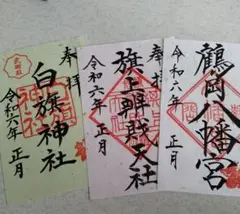 奉拝
鶴岡八幡宮
令和六年正月
奉拝
旗上辨財天社
令和六年正月
奉拝
白旗神社
令和六年正月